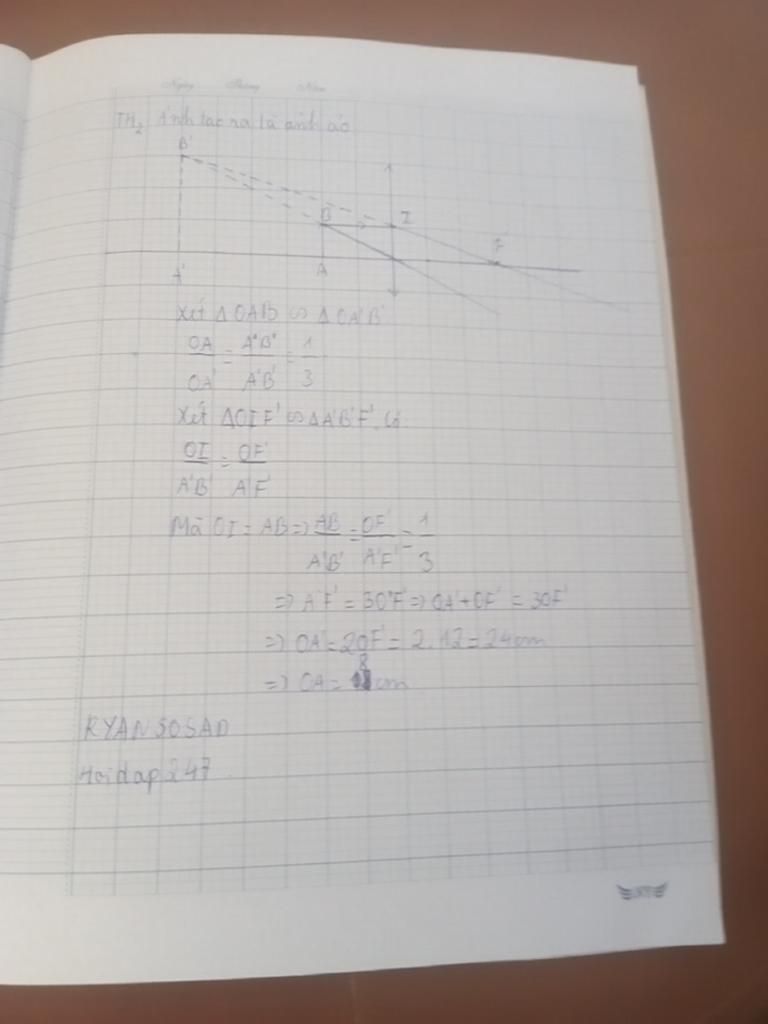 Ngày Tháng Năm
TH2 Ảnh tạo ra là ảnh ảo
B'
B I F'
A' A
Xét ΔOAB ∽ ΔOA'B'
OA/OA' = A'B'/A'B' = 1/3
Xét ΔOIF' ∽ ΔA'B'F' có
OI/A'B' = OF'/A'F'
Mà OI = AB => AB/A'B' = OF'/A'F' = 1/3
=> A'F' = 3OF' => OA' + OF' = 3OF'
=> OA' = 2OF' = 2.12 = 24cm
=> OA = 8 cm
RYAN SOSAD
Hoidap247